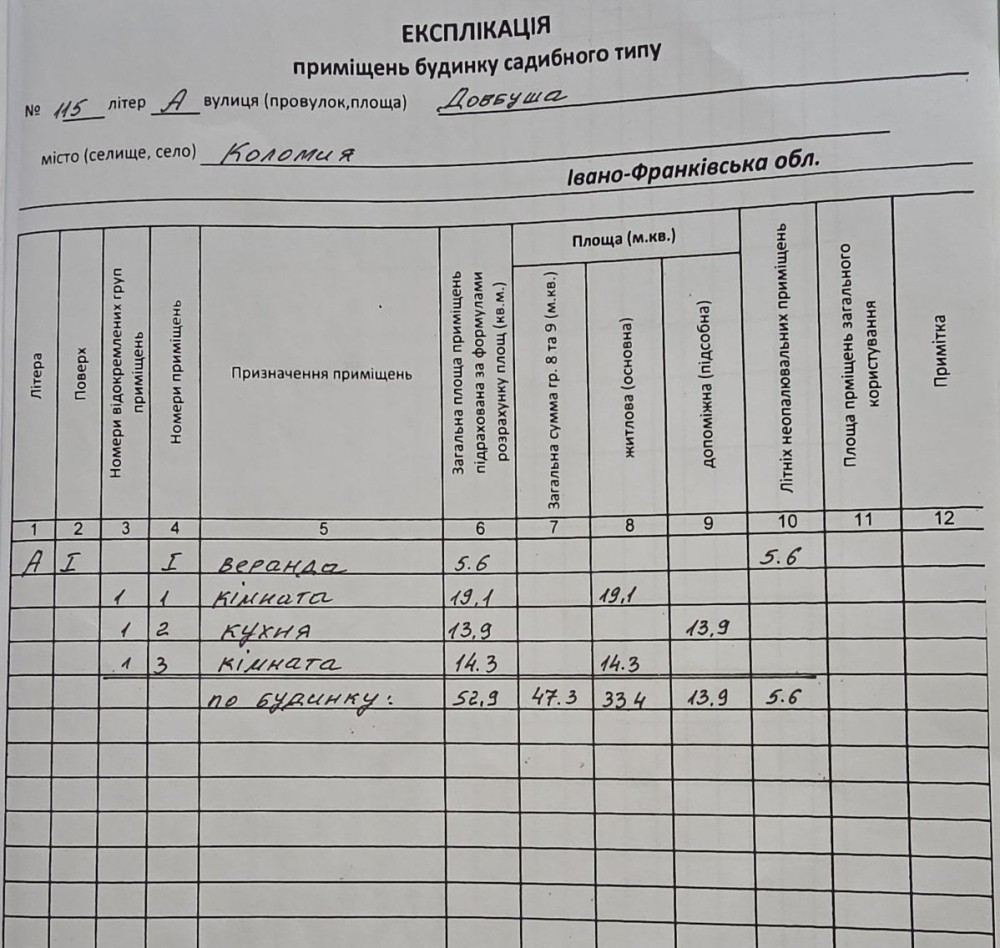 ЕКСПЛІКАЦІЯ
приміщень будинку садибного типу
№ 115 літер А вулиця (провулок,площа) Довбуша
місто (селище, село) Коломия
Івано-Франківська обл.
Літера
Поверх
Номери відокремлених груп приміщень
Номери приміщень
Призначення приміщень
Загальна площа приміщень підрахована за формулами розрахунку площ (кв.м.)
Площа (м.кв.)
Загальна сумма гр. 8 та 9 (м.кв.)
житлова (основна)
допоміжна (підсобна)
Літніх неопалювальних приміщень
Площа прміщень загального користування
Примітка
1 2 3 4 5 6 7 8 9 10 11 12
А І І веранда 5.6 5.6
1 1 кімната 19,1 19,1
1 2 кухня 13,9 13,9
1 3 кімната 14.3 14.3
по будинку: 52,9 47.3 33 4 13.9 5.6